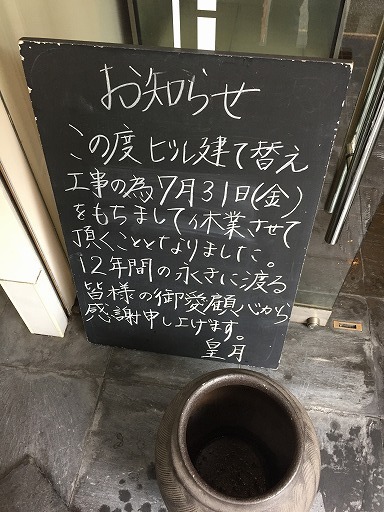 お知らせ
この度ビル建て替え
工事の為7月31日(金)
をもちまして休業させて
頂くこととなりました。
12年間の永きに渡る
皆様の御愛顧心から
感謝申し上げます。
皐月